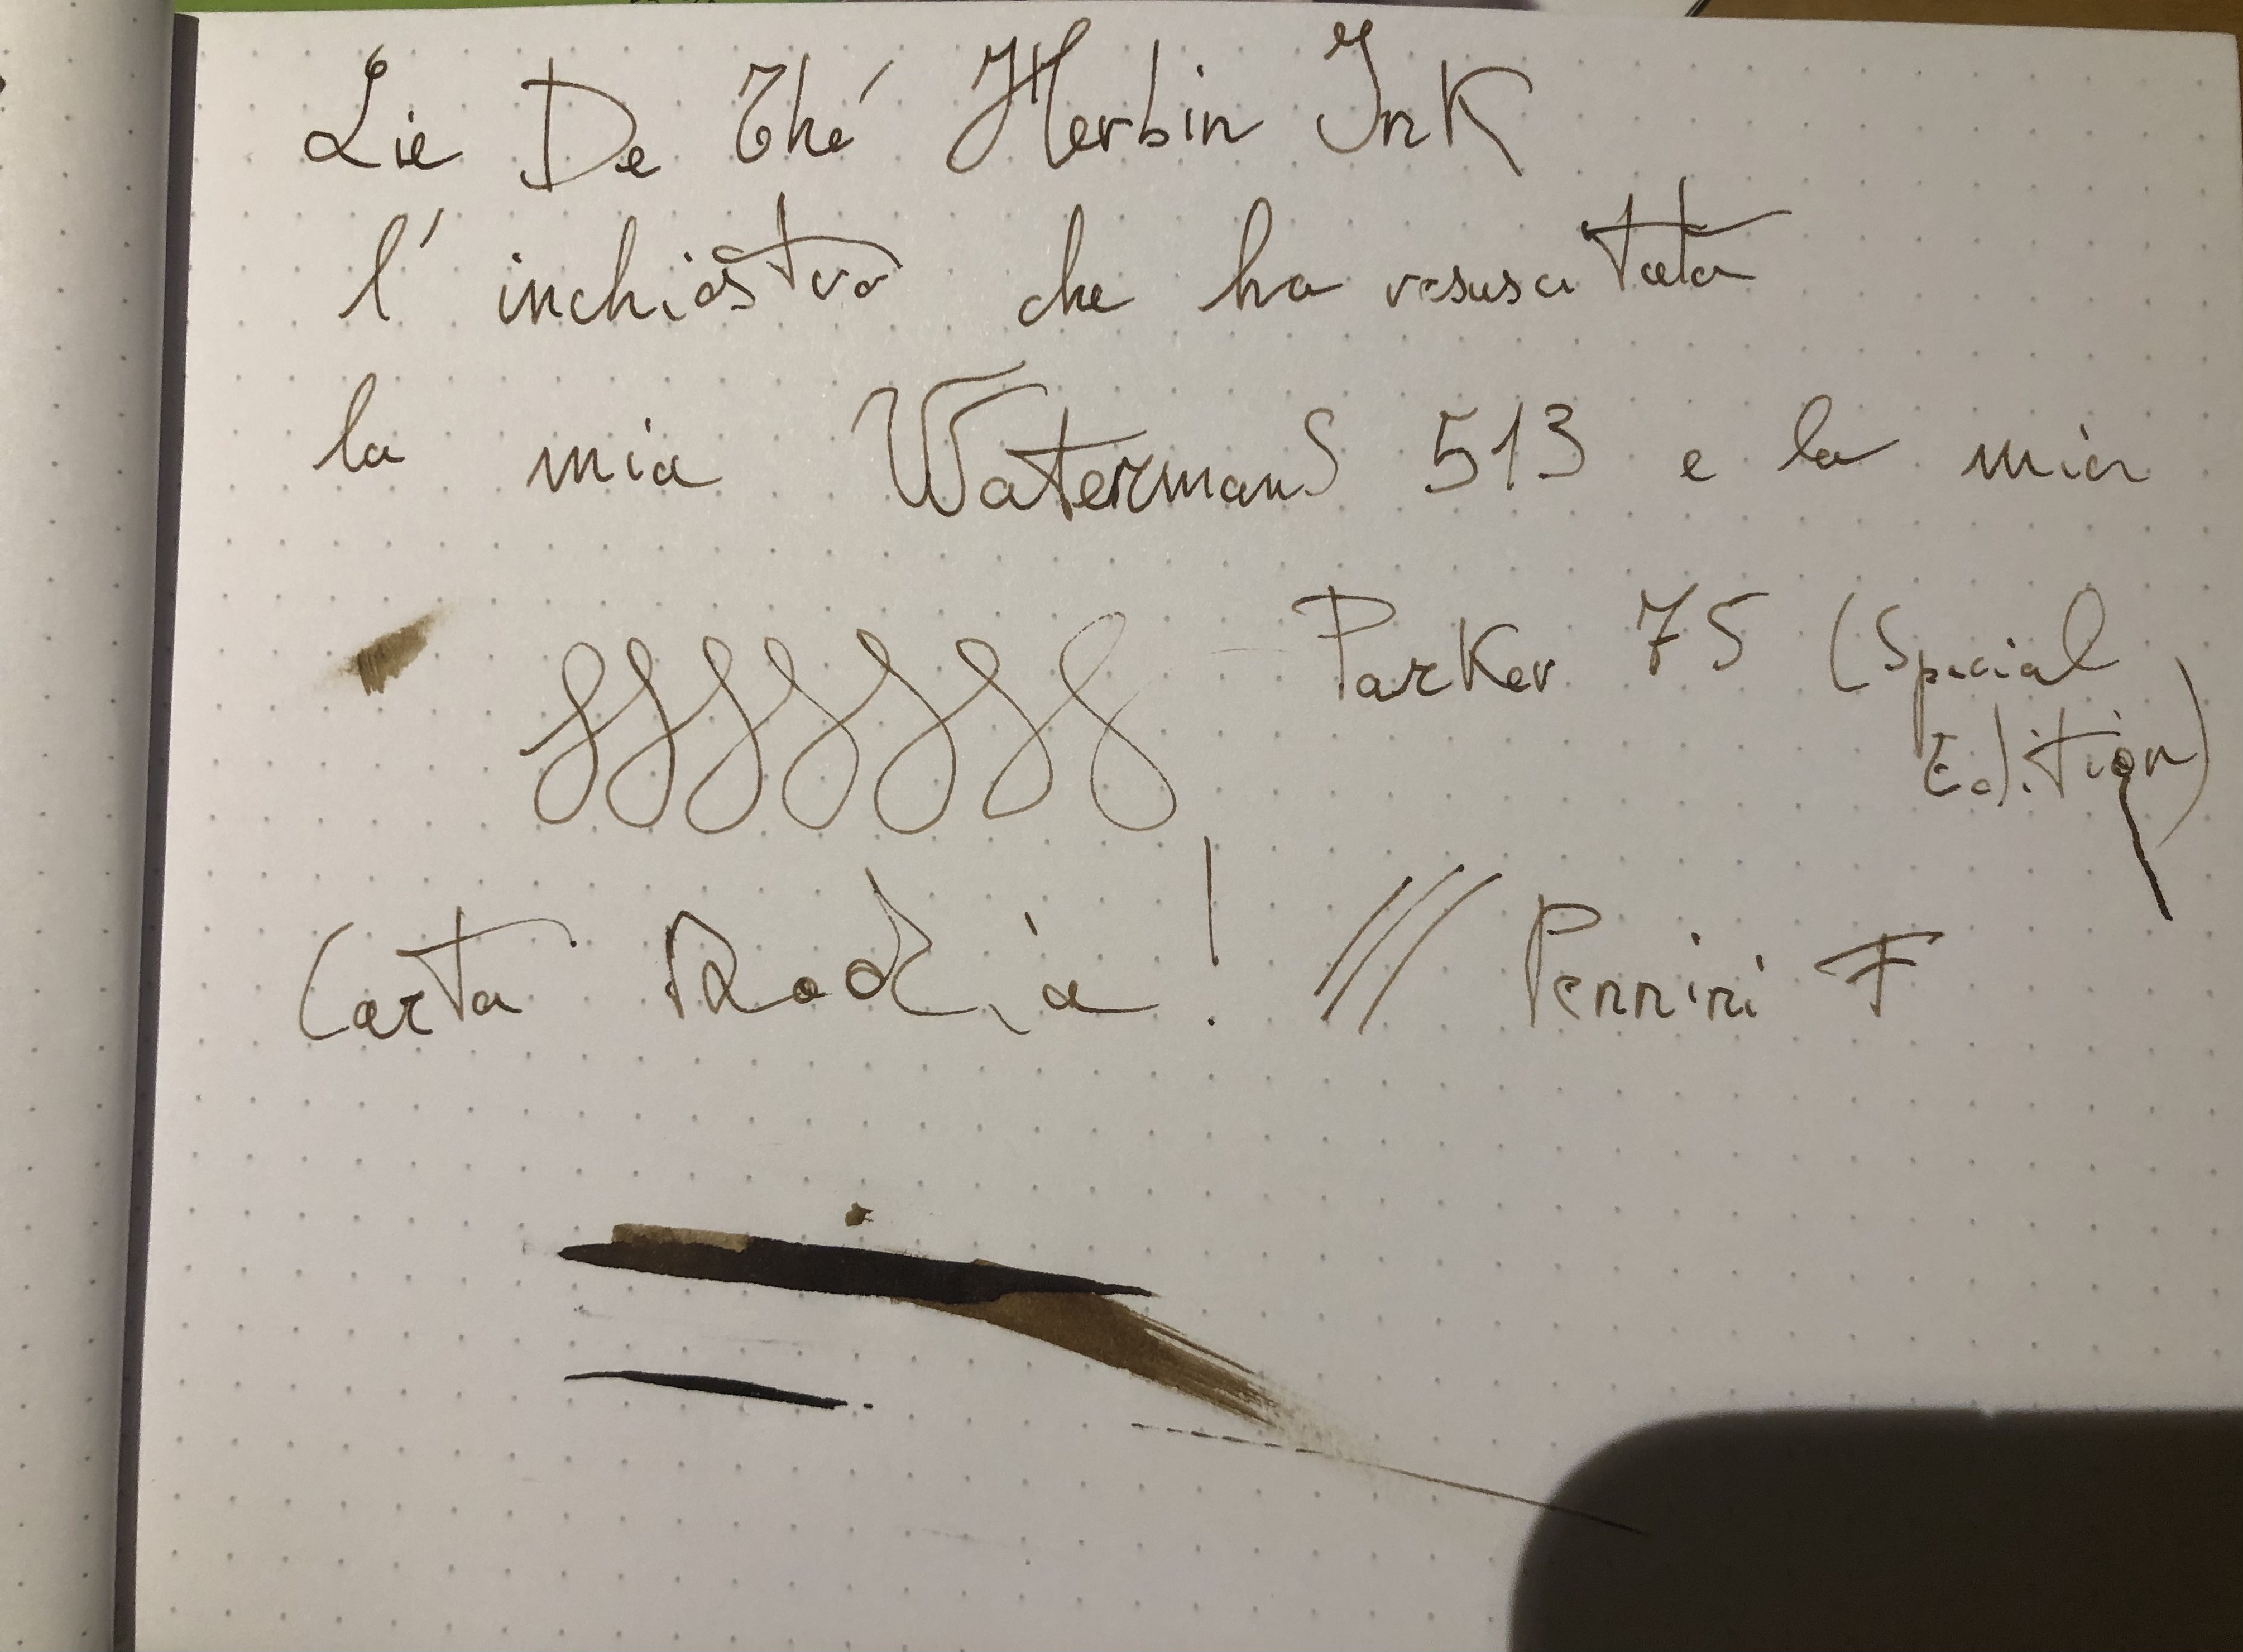 Lie De Thé Herbin Ink
l'inchiostro che ha resuscitata
la mia Watermans 513 e la mia
Parker 75 (Special
Edition)
Carta Rodia! /// Pennini F